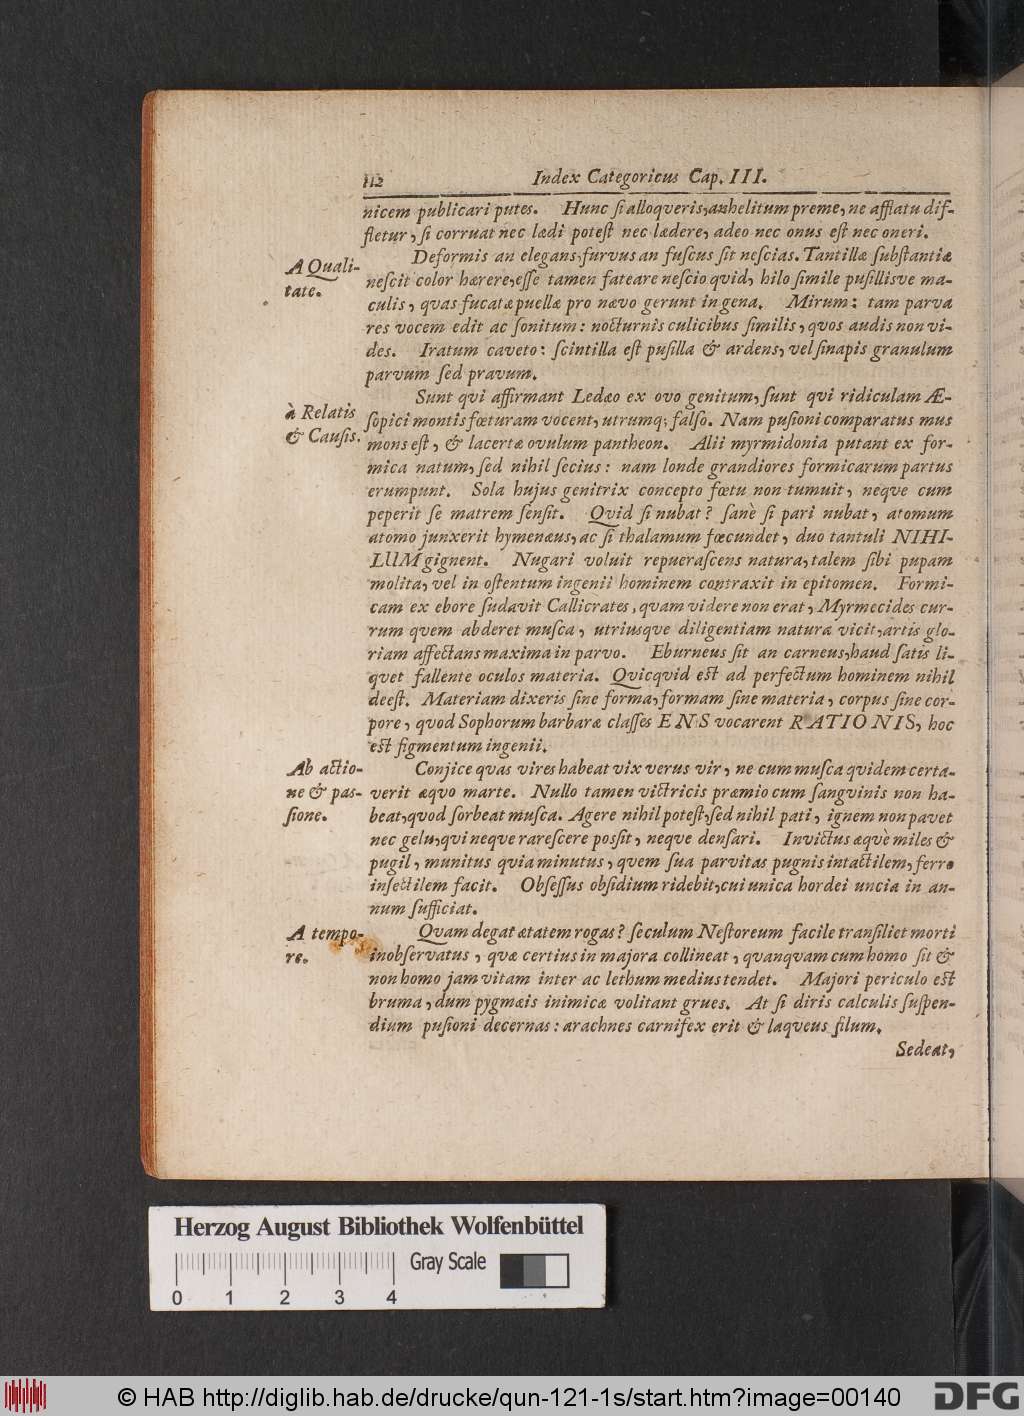 112
Index Categoricus Cap. III.
nicem publicari putes. Hunc si alloqueris, anhelitum preme, ne afflatu dif-
fletur, si corruat nec lædi potest nec lædere, adeo nec onus est nec oneri.
A Quali-
tate.
Deformis an elegans, furvus an fuscus sit nescias. Tantillæ substantiæ
nescit color hærere, esse tamen fateare nescio quid, hilo simile pusillisve ma-
culis, quas fucatæ puellæ pro nævo gerunt in gena. Mirum: tam parva
res vocem edit ac sonitum: nocturnis culicibus similis, quos audis non vi-
des. Iratum caveto: scintilla est pusilla & ardens, vel sinapis granulum
parvum sed pravum.
à Relatis
& Causis.
Sunt qvi affirmant Ledæo ex ovo genitum, sunt qvi ridiculam Æ-
sopici montis fœturam vocent, utrumq; falso. Nam pusioni comparatus mus
mons est, & lacertæ ovulum pantheon. Alii myrmidonia putant ex for-
mica natum, sed nihil secius: nam londe grandiores formicarum partus
erumpunt. Sola hujus genitrix concepto fœtu non tumuit, neqve cum
peperit se matrem sensit. Qvid si nubat? sanè si pari nubat, atomum
atomo junxerit hymenæus, ac si thalamum fœcundet, duo tantuli NIHI-
LUM gignent. Nugari voluit repuerascens natura, talem sibi pupam
molita, vel in ostentum ingenii hominem contraxit in epitomen. Formi-
cam ex ebore sudavit Callicrates, quam videre non erat, Myrmecides cur-
rum quem abderet musca, utriusqve diligentiam natura vicit, artis glo-
riam affectans maxima in parvo. Eburneus sit an carneus, haud satis li-
qvet fallente oculos materia. Qvicqvid est ad perfectum hominem nihil
deest. Materiam dixeris sine forma, formam sine materia, corpus sine cor-
pore, qvod Sophorum barbaræ classes ENS vocarent RATIONIS, hoc
est figmentum ingenii.
Ab actio-
ne & pas-
sione.
Conjice qvas vires habeat vix verus vir, ne cum musca qvidem certa-
verit æqvo marte. Nullo tamen victricis præmio cum sangvinis non ha-
beat, qvod sorbeat musca. Agere nihil potest, sed nihil pati, ignem non pavet
nec gelu, qvi neqve rarescere possit, neqve densari. Invictus æqvè miles &
pugil, munitus qvia minutus, qvem sua parvitas pugnis intactilem, ferro
insectilem facit. Obsessus obsidium ridebit, cui unica hordei uncia in an-
num sufficiat.
A tempo-
re.
Qvam degat ætatem rogas? seculum Nestoreum facile transiliet morti
inobservatus, qvæ certius in majora collineat, qvanqvam cum homo sit &
non homo jam vitam inter ac lethum medius tendet. Majori periculo est
bruma, dum pygmæis inimicæ volitant grues. At si diris calculis suspen-
dium pusioni decernas: arachnes carnifex erit & laqveus filum.
Sedeat,
Herzog August Bibliothek Wolfenbüttel
Gray Scale
0 1 2 3 4
© HAB http://diglib.hab.de/drucke/qun-121-1s/start.htm?image=00140
DFG